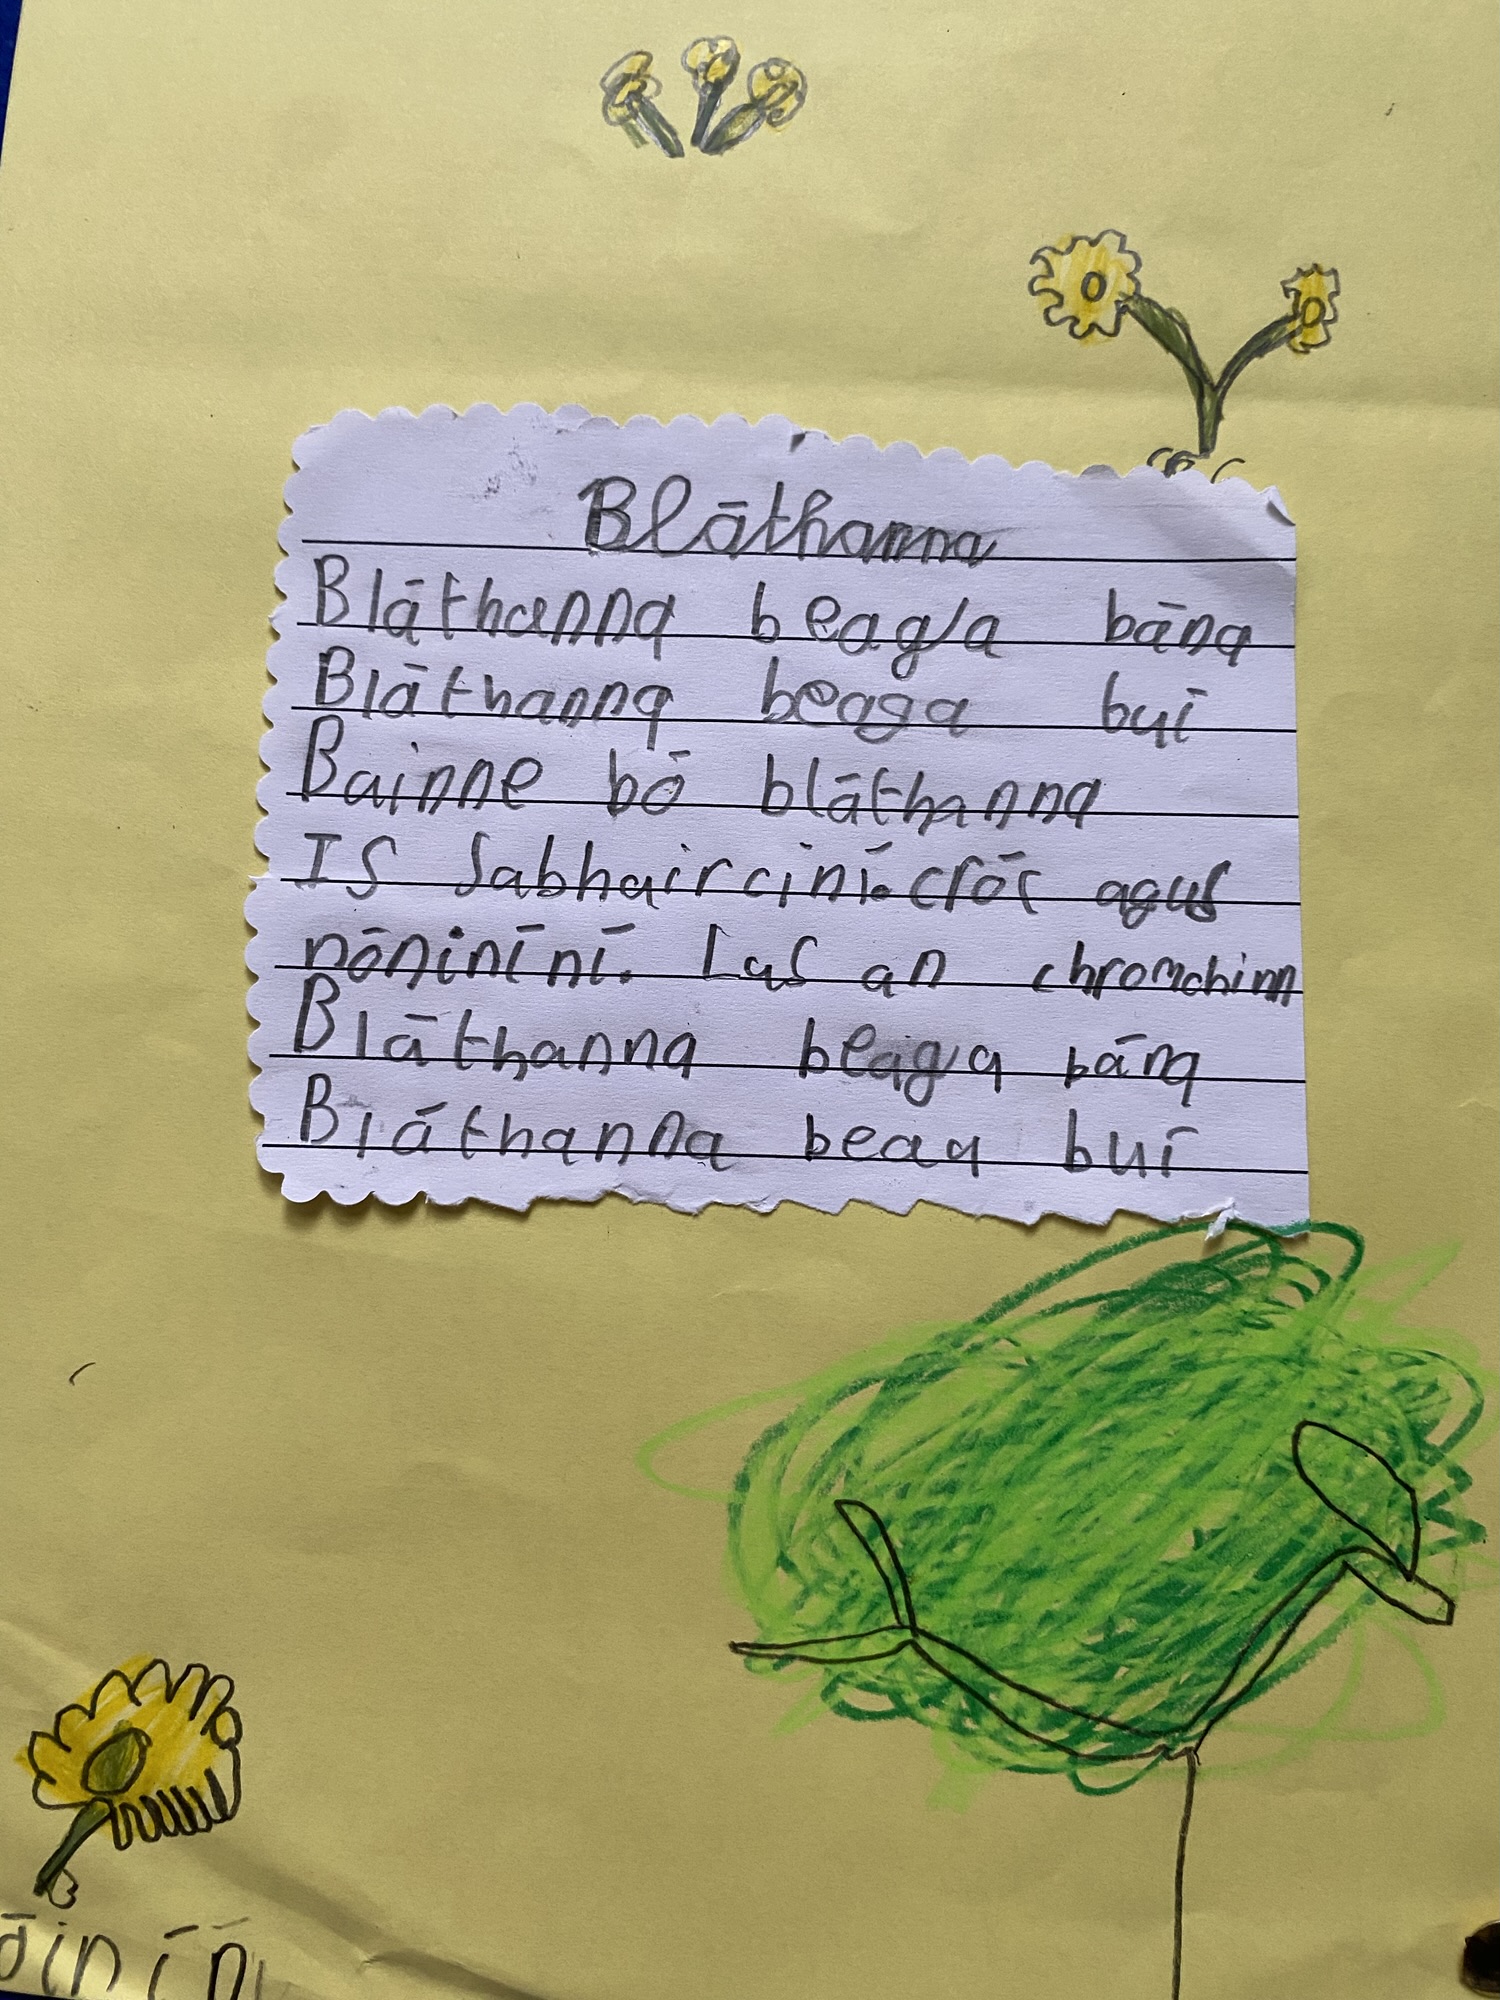 Bláthanna
Bláthanna beaga bána
Bláthanna beaga buí
Bainne bó bláthanna
Is Sabhaircíní. crós agus
nóninīní. Lus an chromchinn
Bláthanna beaga bána
Bláthanna beaa buí